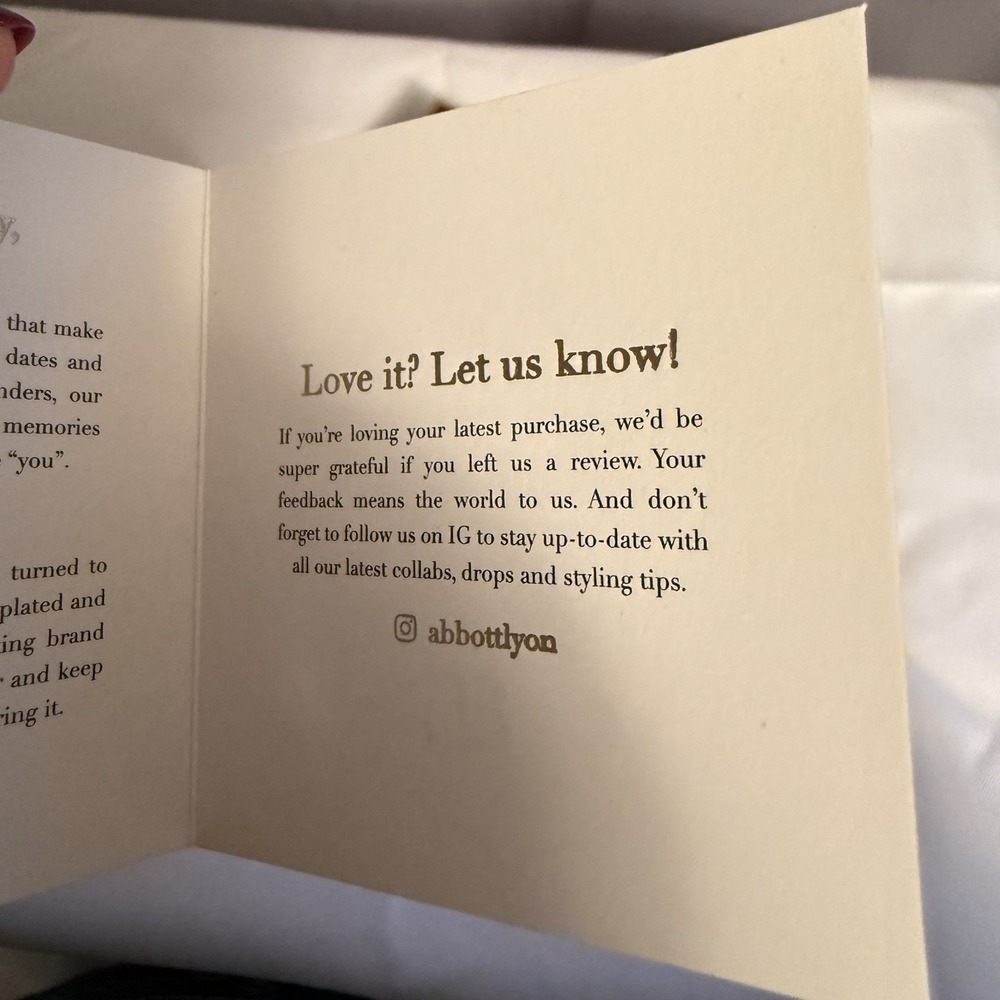 that make
dates and
our
memories
"you".
turned to
plated and
brand
and keep
it.
Love it? Let us know!
If you're loving your latest purchase, we'd be
super grateful if you left us a review. Your
feedback means the world to us. And don't
forget to follow us on IG to stay up-to-date with
all our latest collabs, drops and styling tips.
abbottlyon